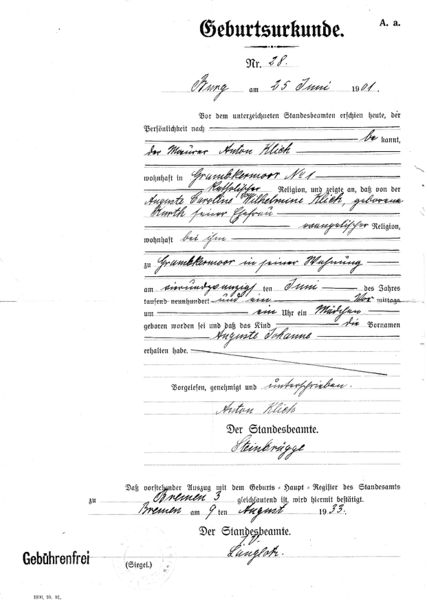 A. a.
Geburtsurkunde.
Nr. 28.
Burg am 25 Juni 1901.
Vor dem unterzeichneten Standesbeamten erschien heute, der
Persönlichkeit nach be kannt,
der Maurer Anton Klich
wohnhaft in Grambkermoor No 1
katholischer Religion, und zeigte an, daß von der
Auguste Caroline Wilhelmine Klich, geborene
Kurth seiner Ehefrau
evangelischer Religion,
wohnhaft bei ihm
zu Grambkermoor in seiner Wohnung
am vierundzwanzigsten Juni des Jahres
tausend neunhundert und ein Vor mittags
um ein Uhr ein Mädchen
geboren worden sei und daß das Kind die Vornamen
Auguste Johanne
erhalten habe.
Vorgelesen, genehmigt und unterschrieben.
Anton Klich
Der Standesbeamte.
Steinbrügge
Daß vorstehender Auszug mit dem Geburts-Haupt-Register des Standesamts
zu Bremen 3 gleichlautend ist, wird hiermit bestätigt.
Bremen am 9 ten August 1933.
Der Standesbeamte.
Gebührenfrei
(Siegel.)